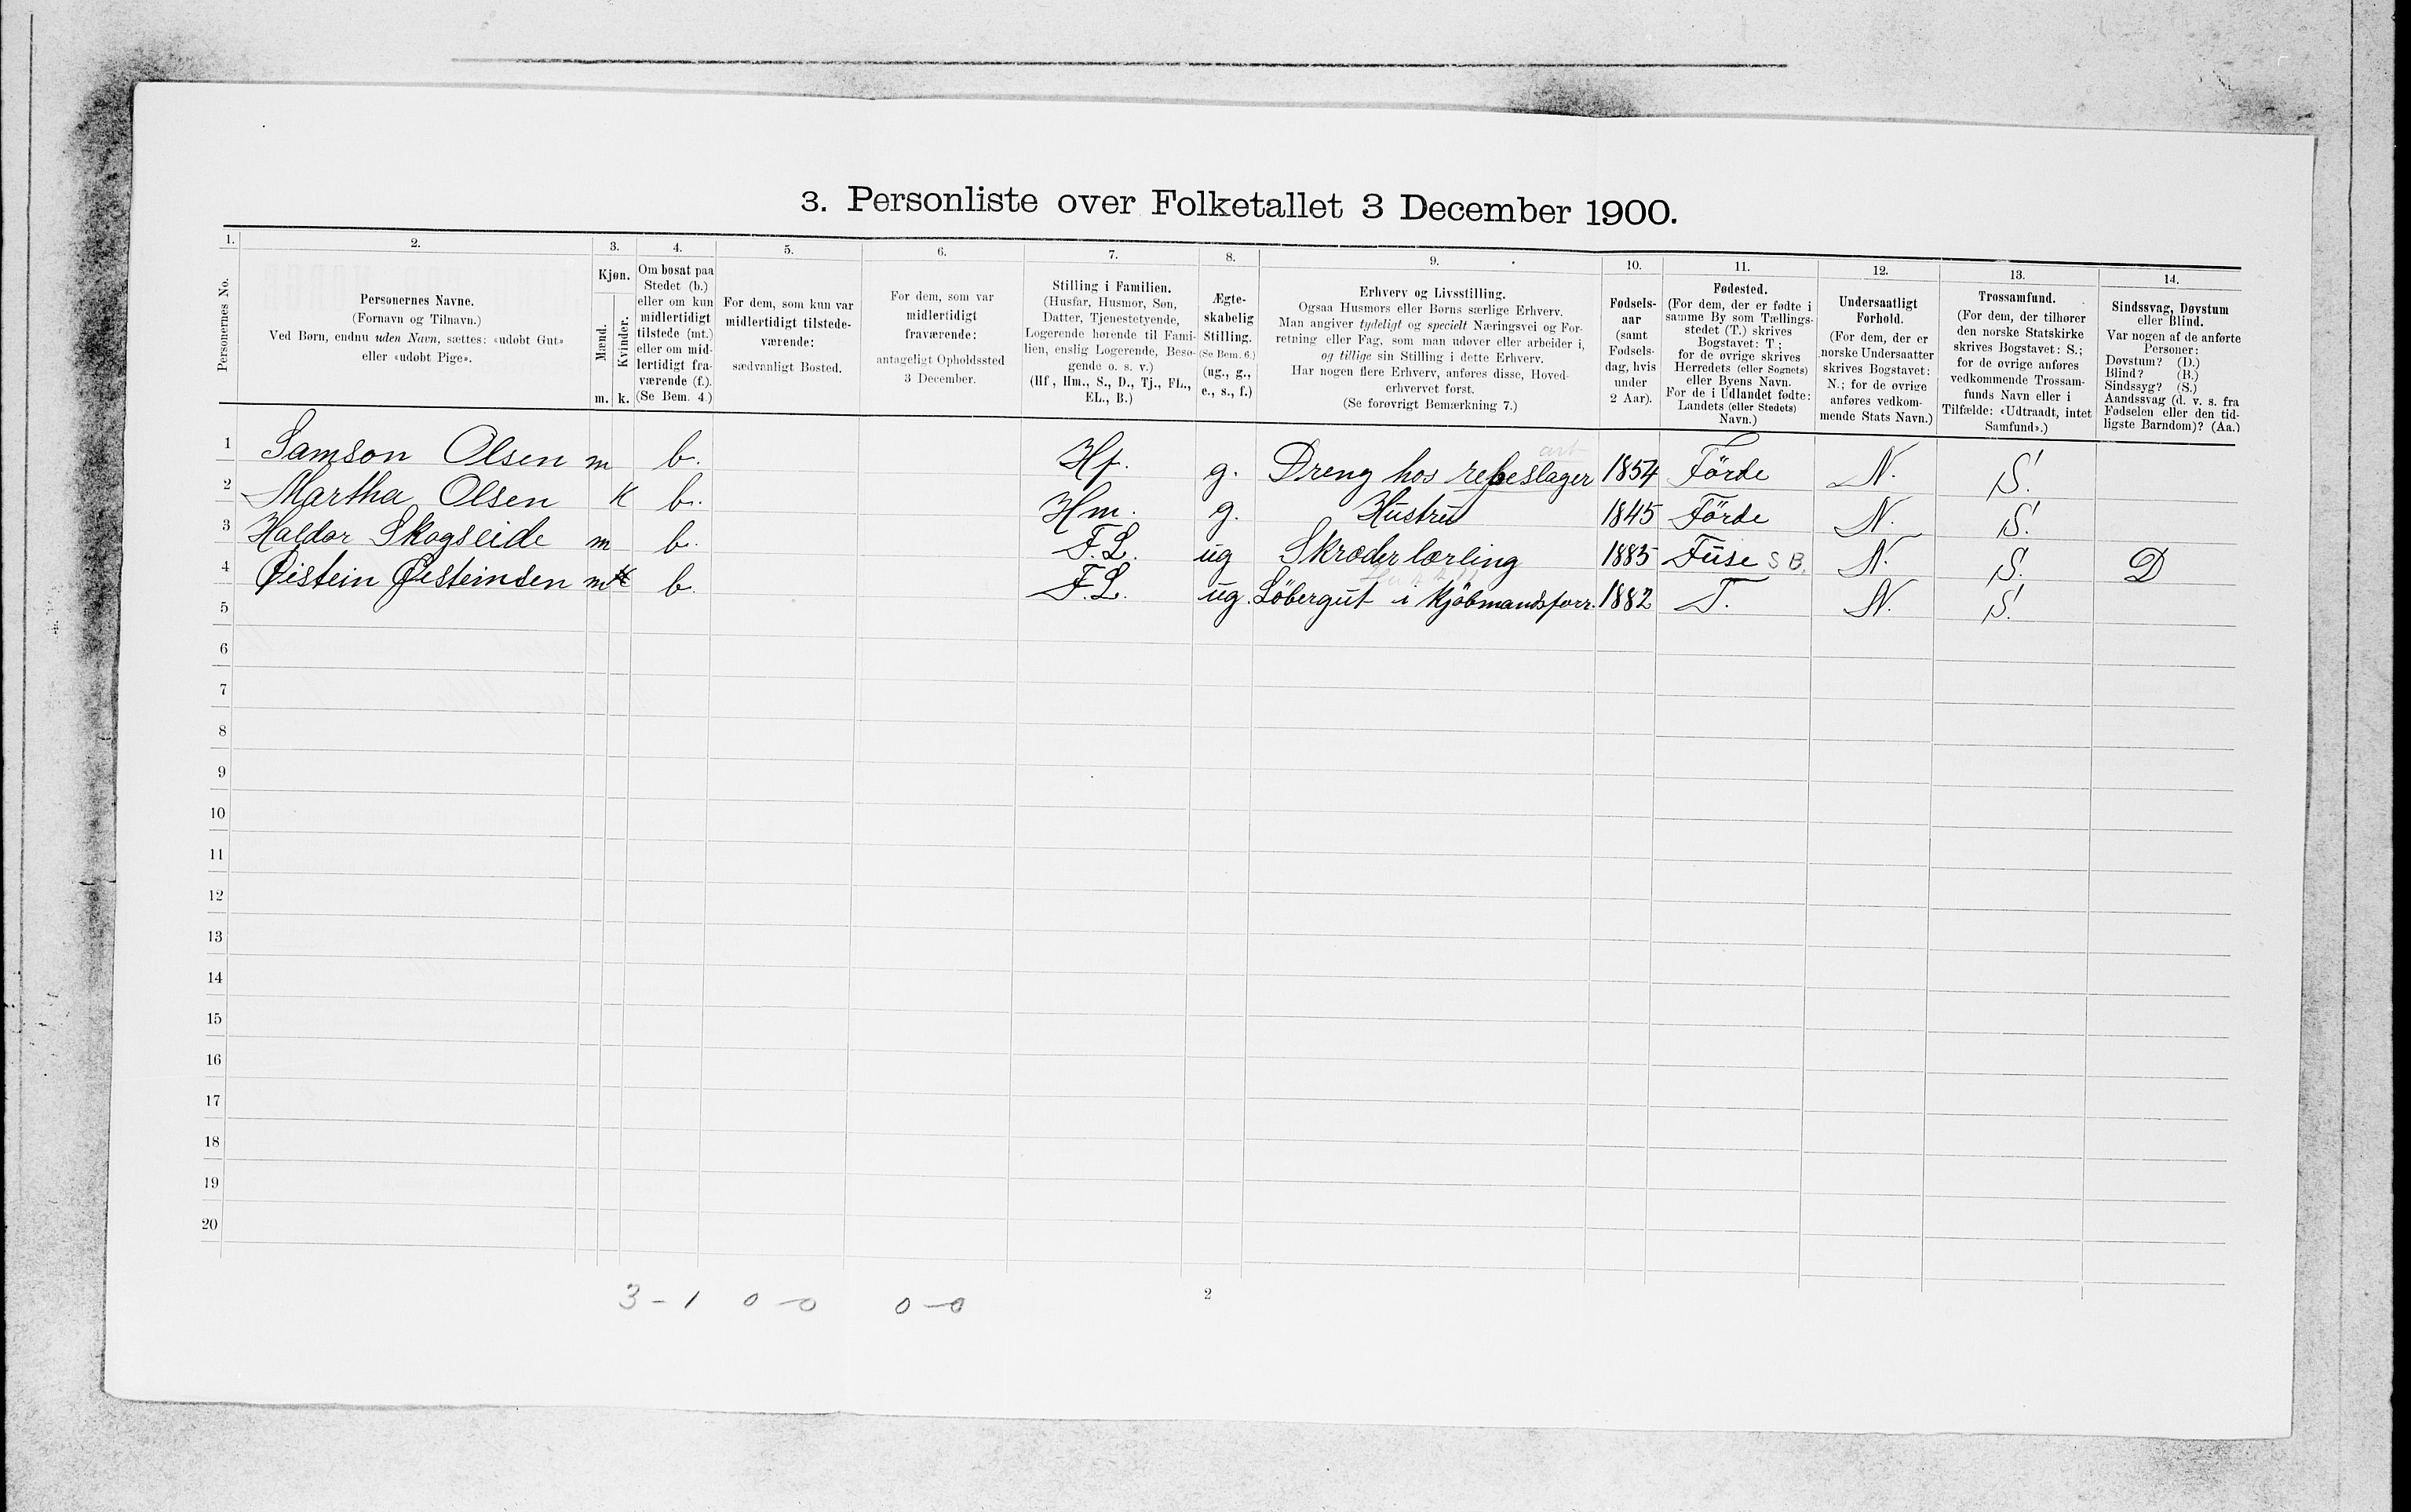 3. Personliste over Folketallet 3 December 1900.
1. 2. 3. 4. 5. 6. 7. 8. 9. 10. 11. 12. 13. 14.
Personernes No.
Personernes Navne.
(Fornavn og Tilnavn.)
Ved Børn, endnu uden Navn, sættes: «udøbt Gut»
eller «udøbt Pige».
Kjøn.
Mænd.
Kvinder.
m. k.
Om bosat paa
Stedet (b.)
eller om kun
midlertidigt
tilstede (mt.)
eller om mid-
lertidigt fra-
værende (f.).
(Se Bem. 4.)
For dem, som kun var
midlertidigt tilstede-
værende:
sædvanligt Bosted.
For dem, som var
midlertidigt
fraværende:
antageligt Opholdssted
3 December.
Stilling i Familien.
(Husfar, Husmor, Søn,
Datter, Tjenestetyende,
Logerende hørende til Fami-
lien, enslig Logerende, Besø-
gende o. s. v.)
(Hf., Hm., S., D., Tj., FL.,
EL., B.)
Ægte-
skabelig
Stilling.
(Se Bem. 6.)
(ug., g.,
e., s., f.)
Erhverv og Livsstilling.
Ogsaa Husmors eller Børns særlige Erhverv.
Man angiver tydeligt og specielt Næringsvei og For-
retning eller Fag, som man udøver eller arbeider i,
og tillige sin Stilling i dette Erhverv.
Har nogen flere Erhverv, anføres disse, Hoved-
erhvervet først.
(Se forøvrigt Bemærkning 7.)
Fødsels-
aar
(samt
Fødsels-
dag, hvis
under
2 Aar).
Fødested.
(For dem, der er fødte i
samme By som Tællings-
stedet (T.) skrives
Bogstavet: T.;
for de øvrige skrives
Herredets (eller Sognets)
eller Byens Navn.
For de i Udlandet fødte:
Landets (eller Stedets)
Navn.)
Undersaatligt
Forhold.
(For dem, der er
norske Undersaatter
skrives Bogstavet:
N.; for de øvrige
anføres vedkom-
mende Stats Navn.)
Trossamfund.
(For dem, der tilhører
den norske Statskirke
skrives Bogstavet: S.;
for de øvrige anføres
vedkommende Trossam-
funds Navn eller i
Tilfælde: «Udtraadt, intet
Samfund».)
Sindssvag, Døvstum
eller Blind.
Var nogen af de anførte
Personer:
Døvstum? (D.)
Blind? (B.)
Sindssyg? (S.)
Aandssvag (d. v. s. fra
Fødselen eller den tid-
ligste Barndom)? (Aa.)
1 Samson Olsen m b. Hf. g. Dreng hos rebeslager 1854 Förde N. S.
2 Martha Olsen K b. Hm. g. Hustru 1845 Förde N. S.
3 Haldor Skogseide m b. F.L. ug Skræder lærling 1885 Fuse S B. N. S. D
4 Øistein Øisteinsen m b. F.L. ug. Löbergut i Kjöbmandsforr. 1882 T. N. S.
5
6
7
8
9
10
11
12
13
14
15
16
17
18
19
20
3 - 1 0 - 0 0 - 0
2